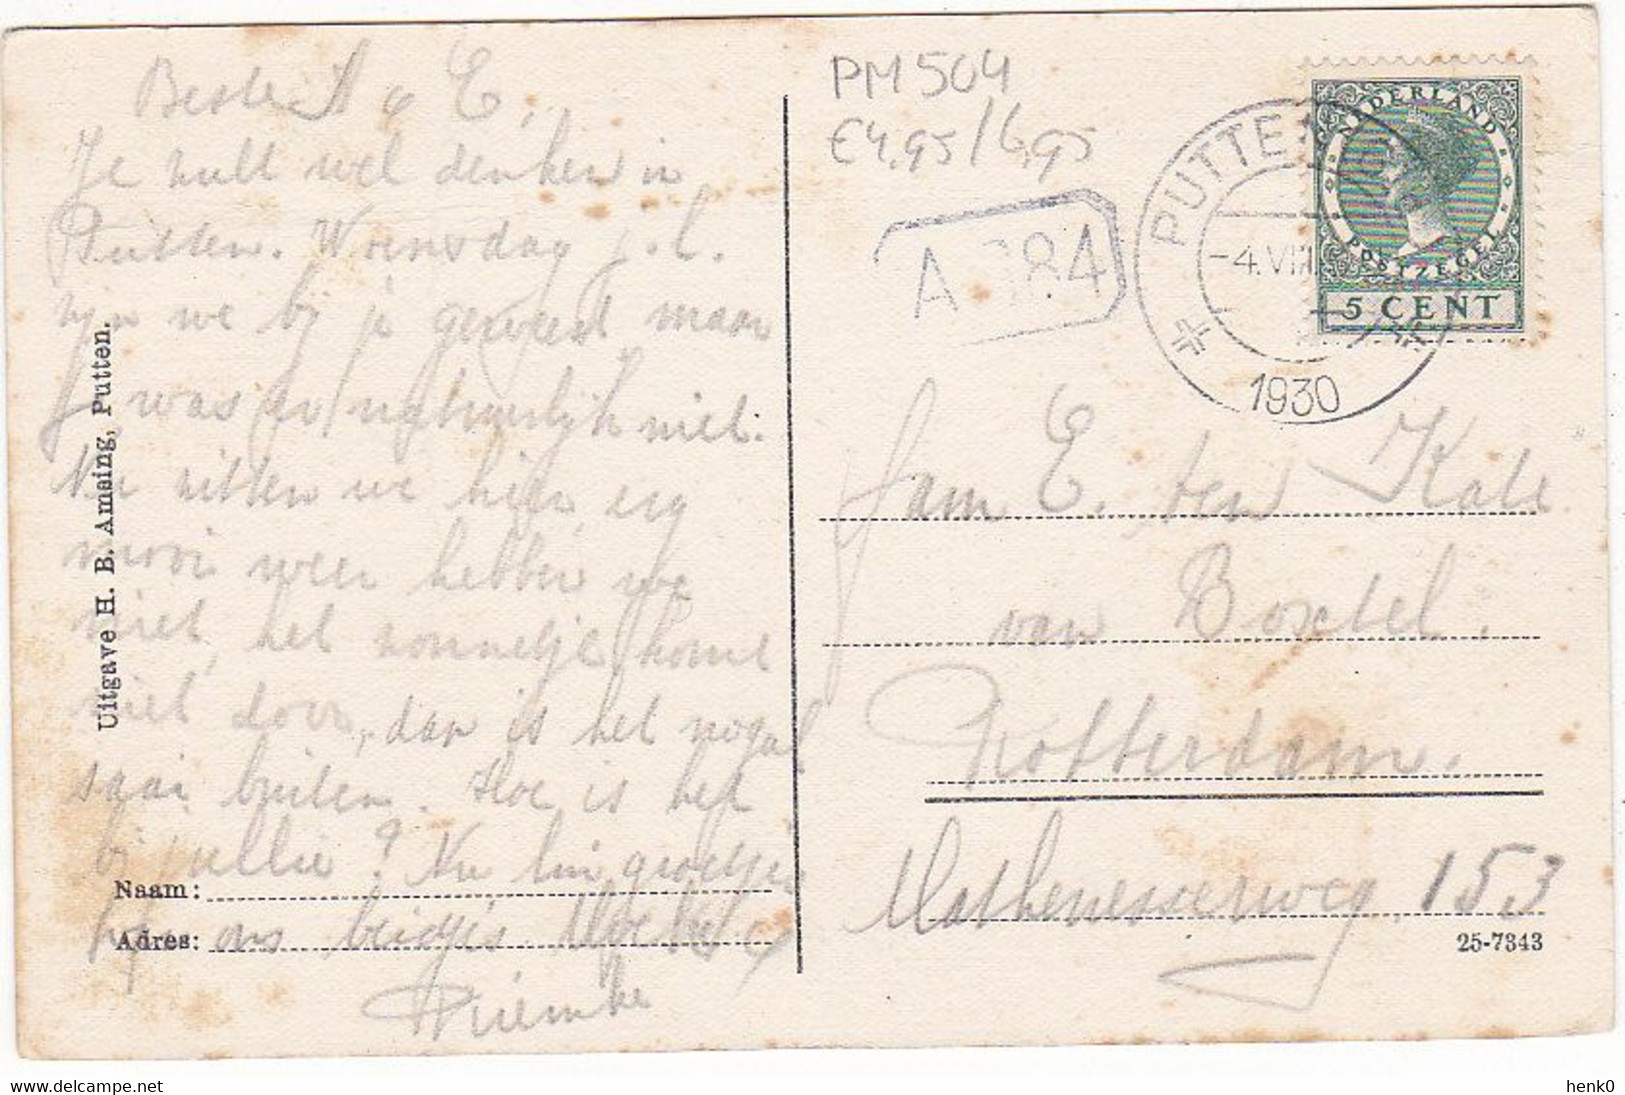 Beste A & E,
Je zult wel denken in
Putten. Woensdag j.l.
zijn we bij je geweest maar
J. was er natuurlijk niet.
Nu zitten we hier, erg
mooi weer hebben we
niet, het zonnetje komt
niet door, dan is het nogal
saai buiten. Hoe is het
bij jullie? Nu hin groetjes
van ons beidjes
Uitgave H. B. Amsing, Putten.
Naam:
Adres:
PM504
€4,95/6,95
A 384
PUTTEN
-4.VIII
1930
NEDERLAND
POSTZEGEL
5 CENT
Fam E. ten Kate
van Boxtel.
Rotterdam.
Mathenesserweg, 153
25-7343
delcampe.net
henk0